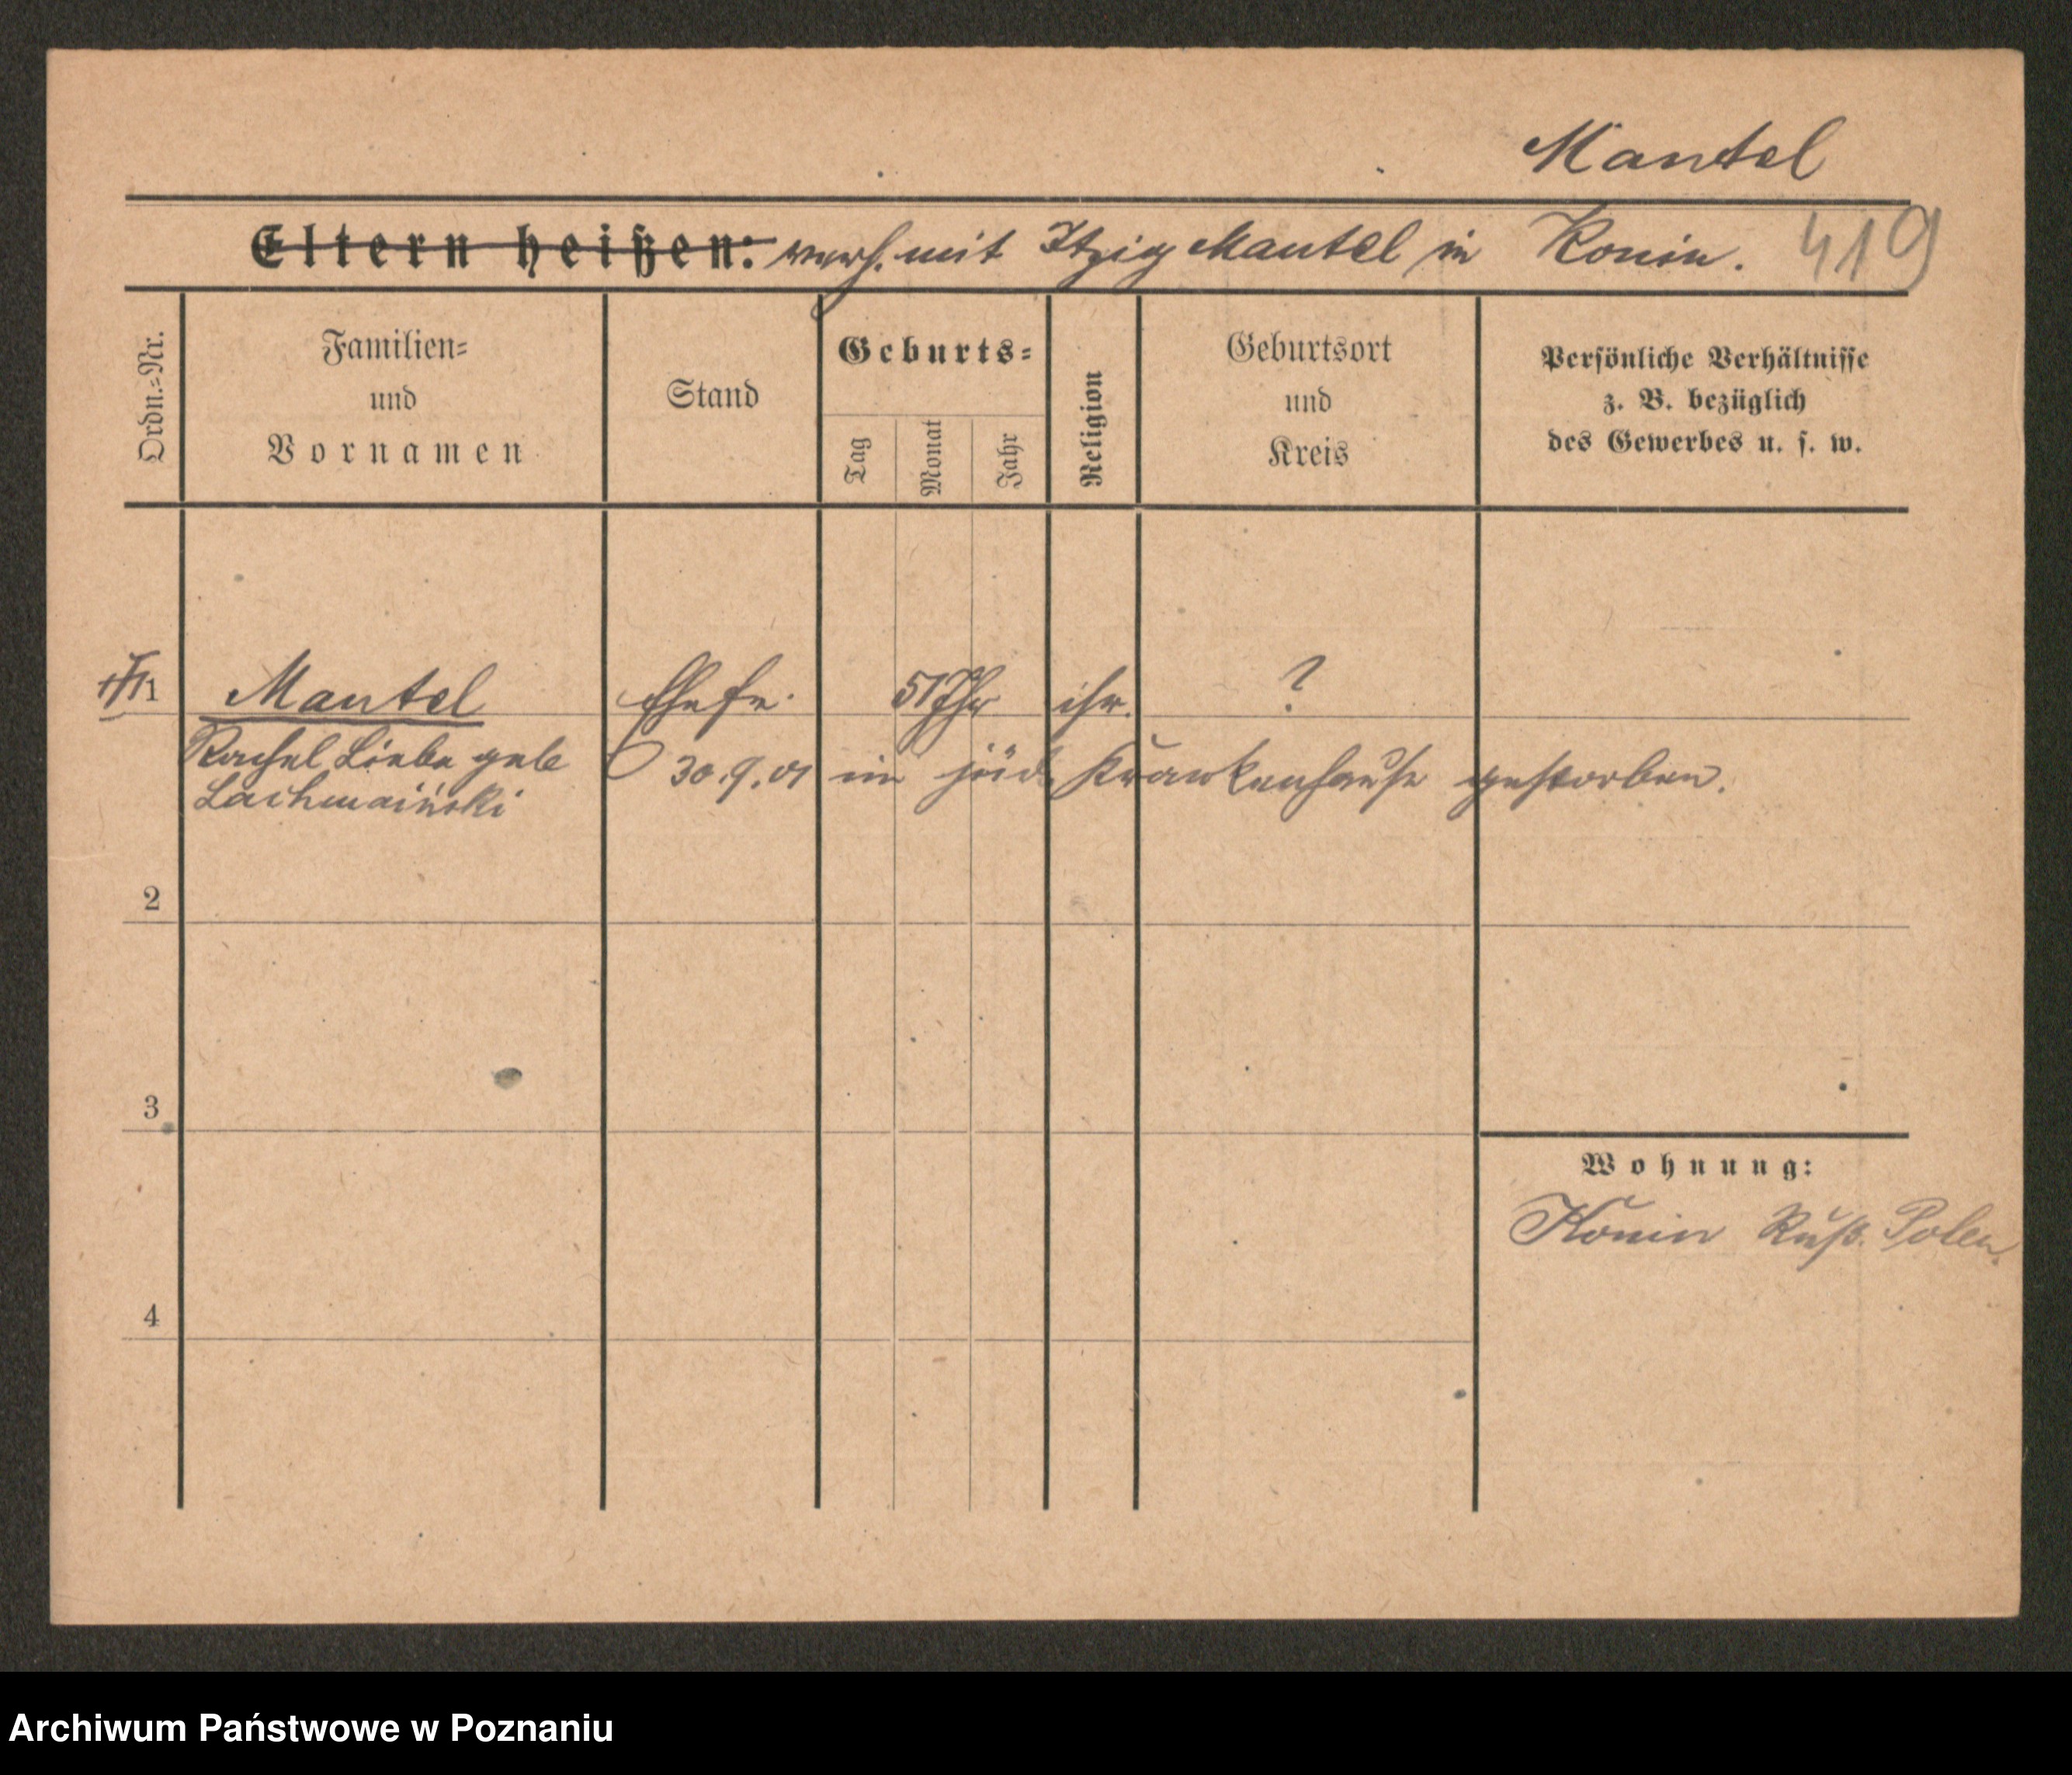 Mantel
Eltern heißen: verh. mit Itzig Mantel in Konin. 419
Ordn.=Nr.
Familien=
und
Vornamen
Stand
Geburts=
Tag
Monat
Jahr
Religion
Geburtsort
und
Kreis
Persönliche Verhältnisse
z. B. bezüglich
des Gewerbes u. s. w.
1 Mantel Ehefr. 51 Jhr isr. ?
Rachel Liebe geb
Lachmaiński
30.9.01 im jüd. Krankenhause gestorben.
2
3
Wohnung:
Konin Ruß. Polen.
4
Archiwum Państwowe w Poznaniu